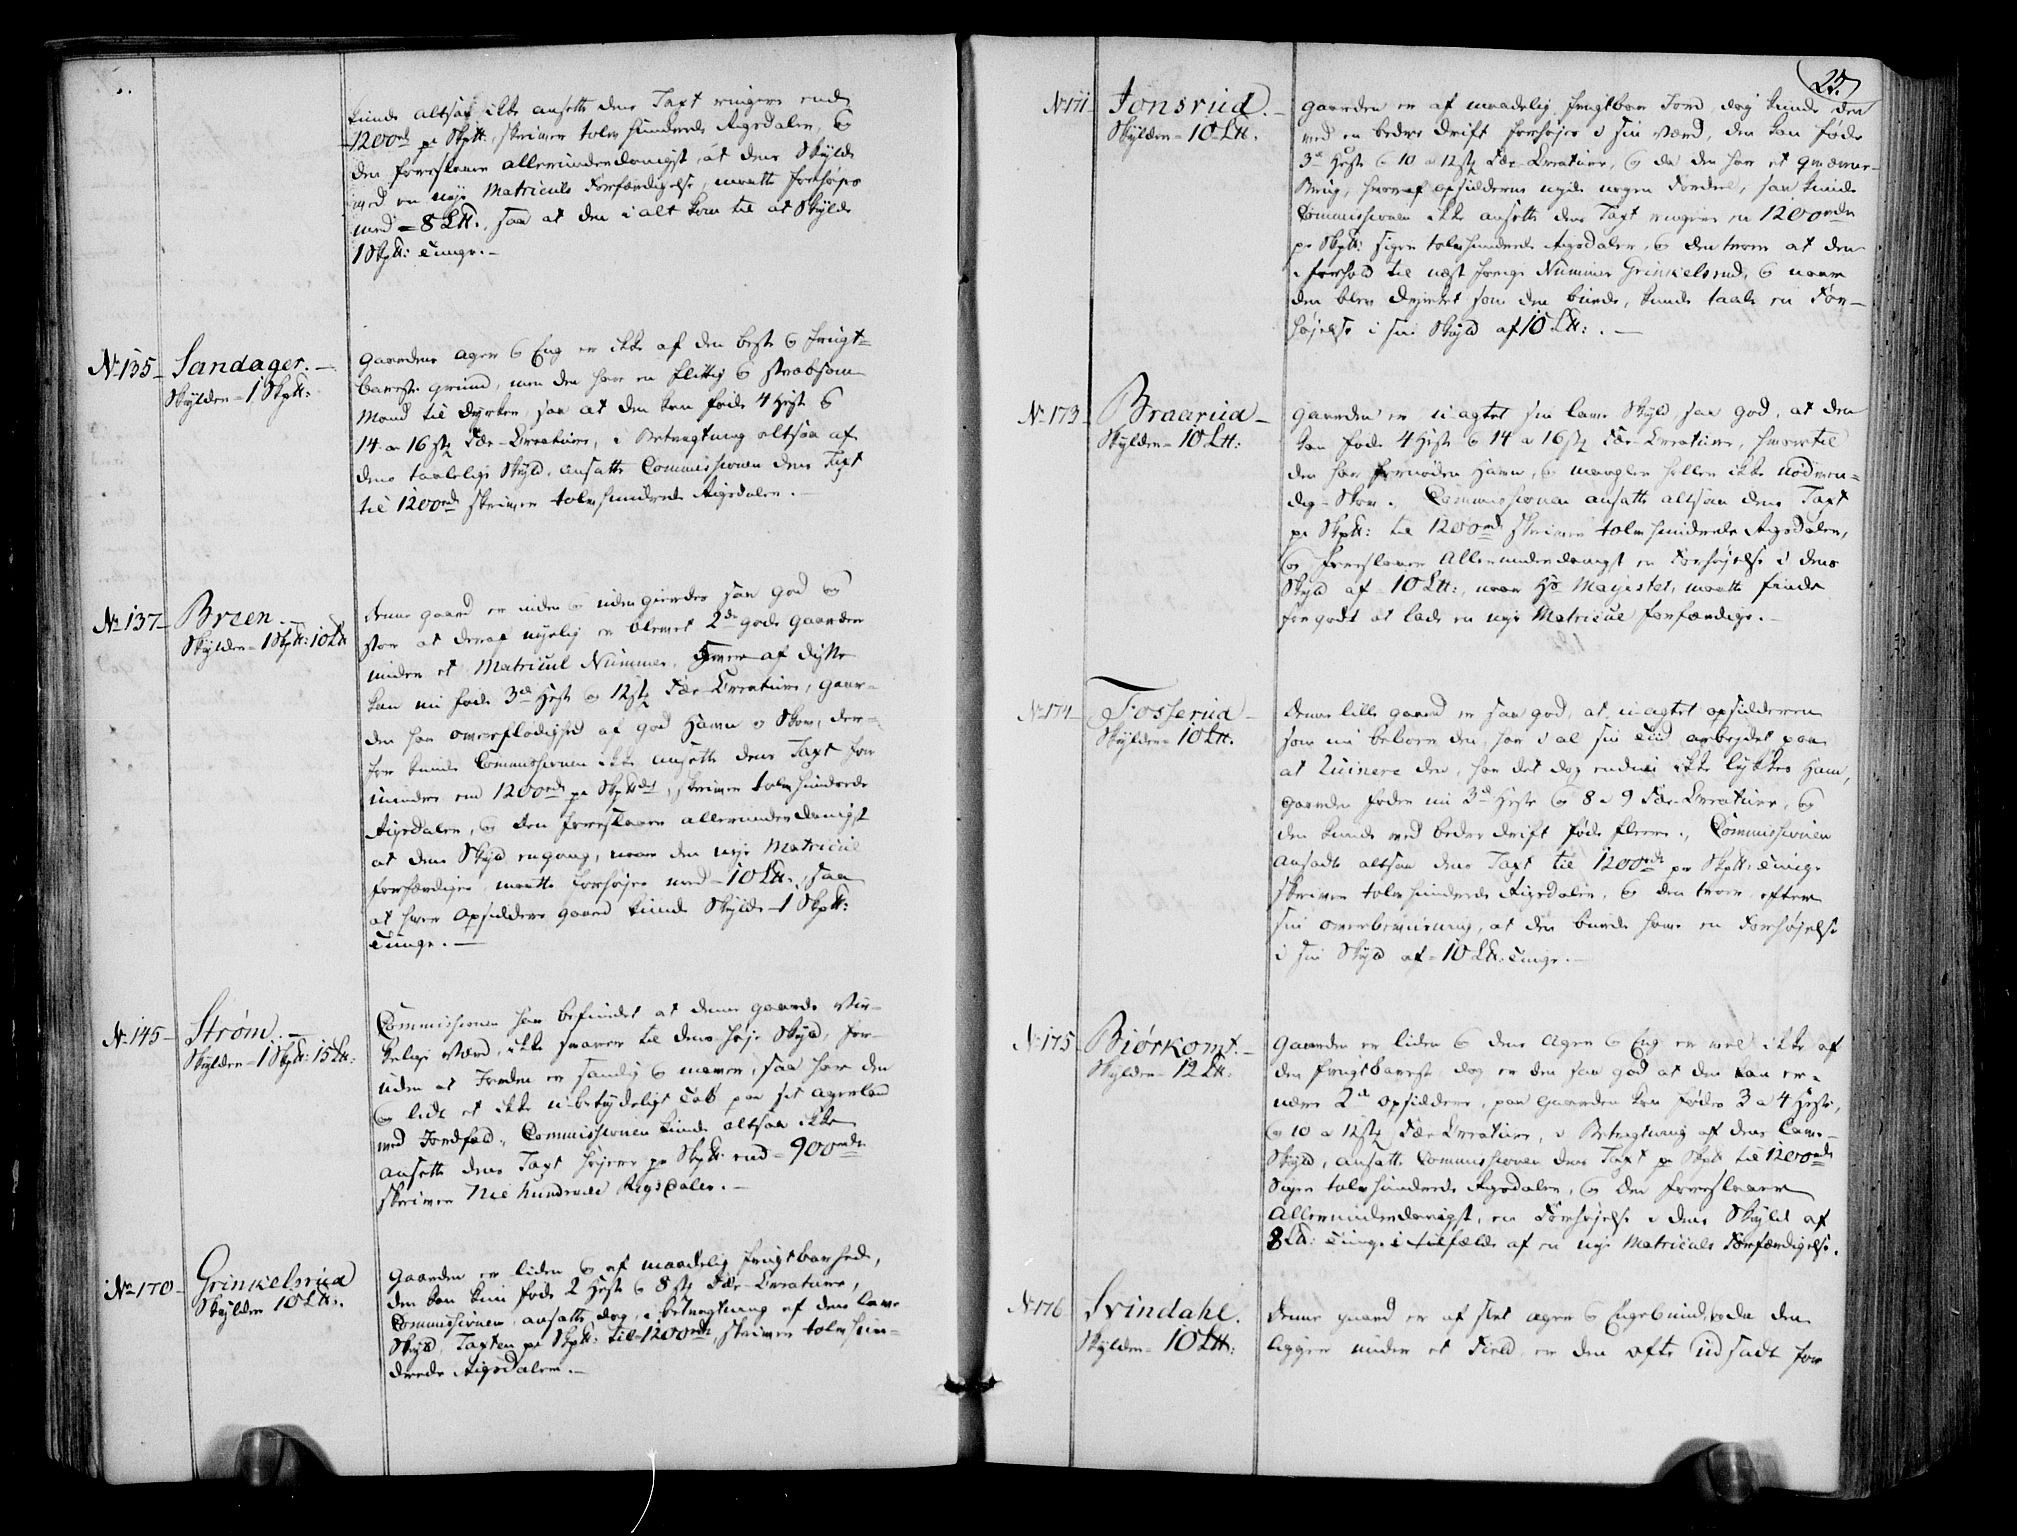 kunde altsaa ikke ansætte dens Taxt ringere end
1200rd pr Skp℔: skriver tolv hundrede Rigsdaler, og
den foreslaaer allerunderdanigst, at dens Skyld
ved en nye Matriculs Forfærdigelse, maatte forhøjes
med = 8 L℔:, saa at den i alt kom til at Skylde
1 Skp℔: Tunge. -
No 135 - Sandager. -
Skylder - 1 Skp℔:
Gaardens ager og Eng er ikke af den beste og frugt=
bareste grund, men den har en flittig og strabsom
Mand til Dyrker, saa at den kan føde 4 Hest og
14 a 16 stk Fæe-Creature, i Betragtning altsaa af
dens taalelige Skyld, ansatte Commissionen dens Taxt
til 1200rd skriver tolv hundrede Rigsdaler. -
No 137 - Breen. -
Skylder - 1 Skp℔: 10 L℔
Denne gaard er inden og uden gierdes saa god og
stor at deraf nyelig er blevet 2de gode Gaarder
under et Matricul Nummer, hver af disse
kan nu føde 3de Hest og 12 stk Fæe-Creature, Gaar-
den har overflødighed af god Havn og Skov, der-
for kunde Commissionen ikke ansætte dens Taxt for
mindre end 1200rd pr Skp℔d, skriver tolv hundrede
Rigsdaler, og den foreslaaer allerunderdanigst
at dens Skyld engang, naar den nye Matricul
forfærdiges, maatte forhøjes med - 10 L℔:, saa
at hver Opsidders gaard kunde Skylde - 1 Skp℔:
Tunge. -
No 145 - Strøm. -
Skylder - 1 Skp℔: 15 L℔:
Commissionen har befundet at denne gaards Vir-
kelige Værd, ikke svarer til dens høje Skyld, for-
uden at Jorden er sandig og mager, saa har den
og lidt et ikke u-betydeligt Tab paa sit agerland
ved Jordfald, Commissionen kunde altsaa ikke
ansætte dens Taxt højere pr Skp℔: end - 900rd
skriver Nie hundrede Rigsdaler. -
No 170 - Grinkelsrud
Skylder 10 L℔:.
Gaarden er liden og af maadelig frugtbarhed,
den kan kun føde 2 Hest og 8 stk Fæe-Creature,
Commissionen ansatte dog, i betragtning af dens lave
Skyld, Taxten pr Skp℔: til 1200rd, skriver tolv hun-
drede Rigsdaler. -
25.
No 171 - Jonsrud. -
Skylder - 10 L℔:
Gaarden er af maadelig frugtbar Jord, dog kunde den
ved en bedre drift forhøjes i sin Værd, den kan føde
3de Hest og 10 a 12 stk Fæe-Creature, og da den har et qværne-
Brug, hvoraf opsidderne nyde nogen Fordeel, saa kunde
Commissionen ikke ansætte dens Taxt ringere en 1200rd
pr Skp℔: siger tolv hundrede Rigsdaler, og den troer at den
i forhold til næst forrige Nummer Grinkelsrud, og naar
den blev dyrket som den burde, kunde taale en For-
højelse i sin Skyld af 10 L℔:. -
No 173 - Braarud -
Skylder - 10 L℔:
Gaarden er u-agtet sin lave Skyld, saa god, at den
kan føde 4 Hest og 14 a 16 stk Fæe-Creature, hvortil
den har fornøden Havn, og mangler heller ikke nødven-
dig Skov. Commissionen ansatte altsaa dens Taxt
pr Skp℔: til 1200rd skriver tolv hundrede Rigsdaler,
og foreslaaer Allerunderdanigst en Forhøjelse i dens
Skyld af 10 L℔:, naar Hs Majestet, maatte finde
for godt at lade en nye Matricul forfærdige. -
No 174 - Fosserud -
Skylder - 10 L℔.
Denne lille gaard er saa god, at u-agtet opsidderen
som nu beboer den, har i al sin Tiid arbejdet paa
at Ruinere den, har det dog endnu ikke lykkes ham,
gaarden føder nu 3de Heste og 8 a 9 Fæe-Creature, og
den kunde ved bedre drift føde fleere, Commissionen
ansadte altsaa dens Taxt til 1200rd pr Skp℔: Tunge
skriver tolv hundrede Rigsdaler, og den troer efter
sin overbeviisning, at den burde have en Forhøjelse
i sin Skyld af - 10 L℔: Tunge. -
No 175 Biørkomt. -
Skylder - 12 L℔:
Gaarden er liden og dens ager og Eng er vel ikke af
den frugtbareste, dog er den saa god at den kan er-
nære 2de opsiddere, paa gaarden kan fødes 3 a 4 Heste,
og 10 a 12 stk Fæe-Creature, i Betragtning af dens lave
Skyld, ansatte Commissionen dens Taxt pr Skp℔ til 1200rd
Siger tolv hundrede Rigsdaler, og den foreslaaer
Allerunderdanigst, en Forhøjelse i dens Skyld af
8 L℔: Tunge i tilfælde af en nye Matriculs Forfærdigelse.
No 176 Svindahl.
Skylder - 10 L℔:
Denne gaard er af slet ager og Engebund, da den
ligger under et Field, er den ofte udsadt for